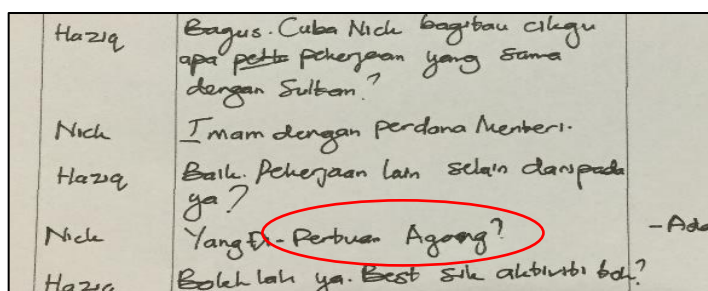 Haziq Bagus. Cuba Nick bagitau cikgu
apa pekerjaan yang sama
dengan Sultan?
Nick Imam dengan perdana Menteri.
Haziq Baik. Pekerjaan lain selain daripada
ya?
Nick Yang Di-Pertuan Agong?
Haziq Boleh lah ya. Best sik aktiviti boh?